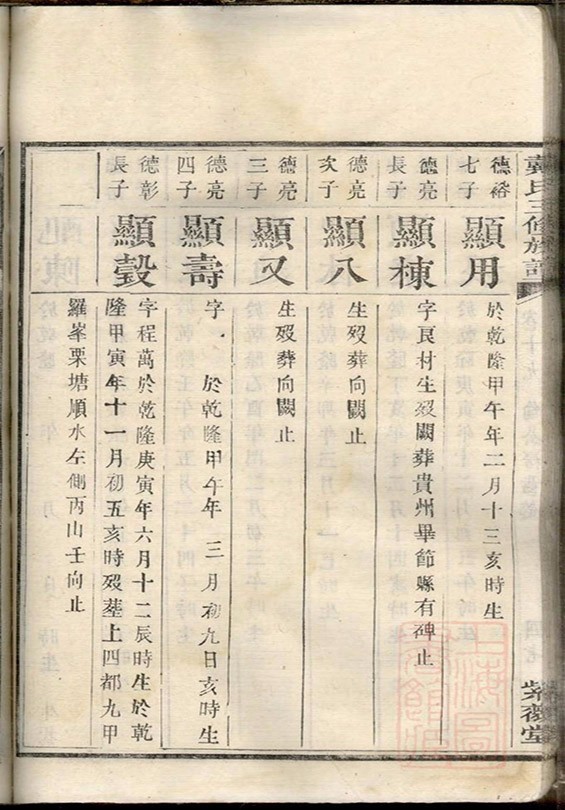 戴氏三修族譜
紫薇堂
德裕
七子
顯用
於乾隆甲午年二月十三亥時生
德亮
長子
顯棟
字良材生歿闕葬貴州畢節縣有碑止
德亮
次子
顯八
生歿葬向闕止
德亮
三子
顯又
生歿葬向闕止
德亮
四子
顯壽
字 於乾隆甲午年 三月初九日亥時生
德彰
長子
顯毅
字程萬於乾隆庚寅年六月十二辰時生於乾
隆甲寅年十一月初五亥時歿塟上四都九甲
羅峯栗塘順水左側丙山壬向止